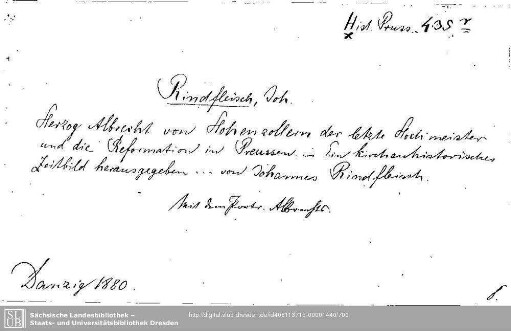 Hist. Pruss. 435 r
Rindfleisch, Joh.
Herzog Albrecht von Hohenzollern der letzte Hochmeister
und die Reformation in Preussen. Ein kirchenhistorisches
Zeitbild herausgegeben ... von Johannes Rindfleisch.
Mit dem Portr. Albrechts.
Danzig 1880.
Sächsische Landesbibliothek –
Staats- und Universitätsbibliothek Dresden